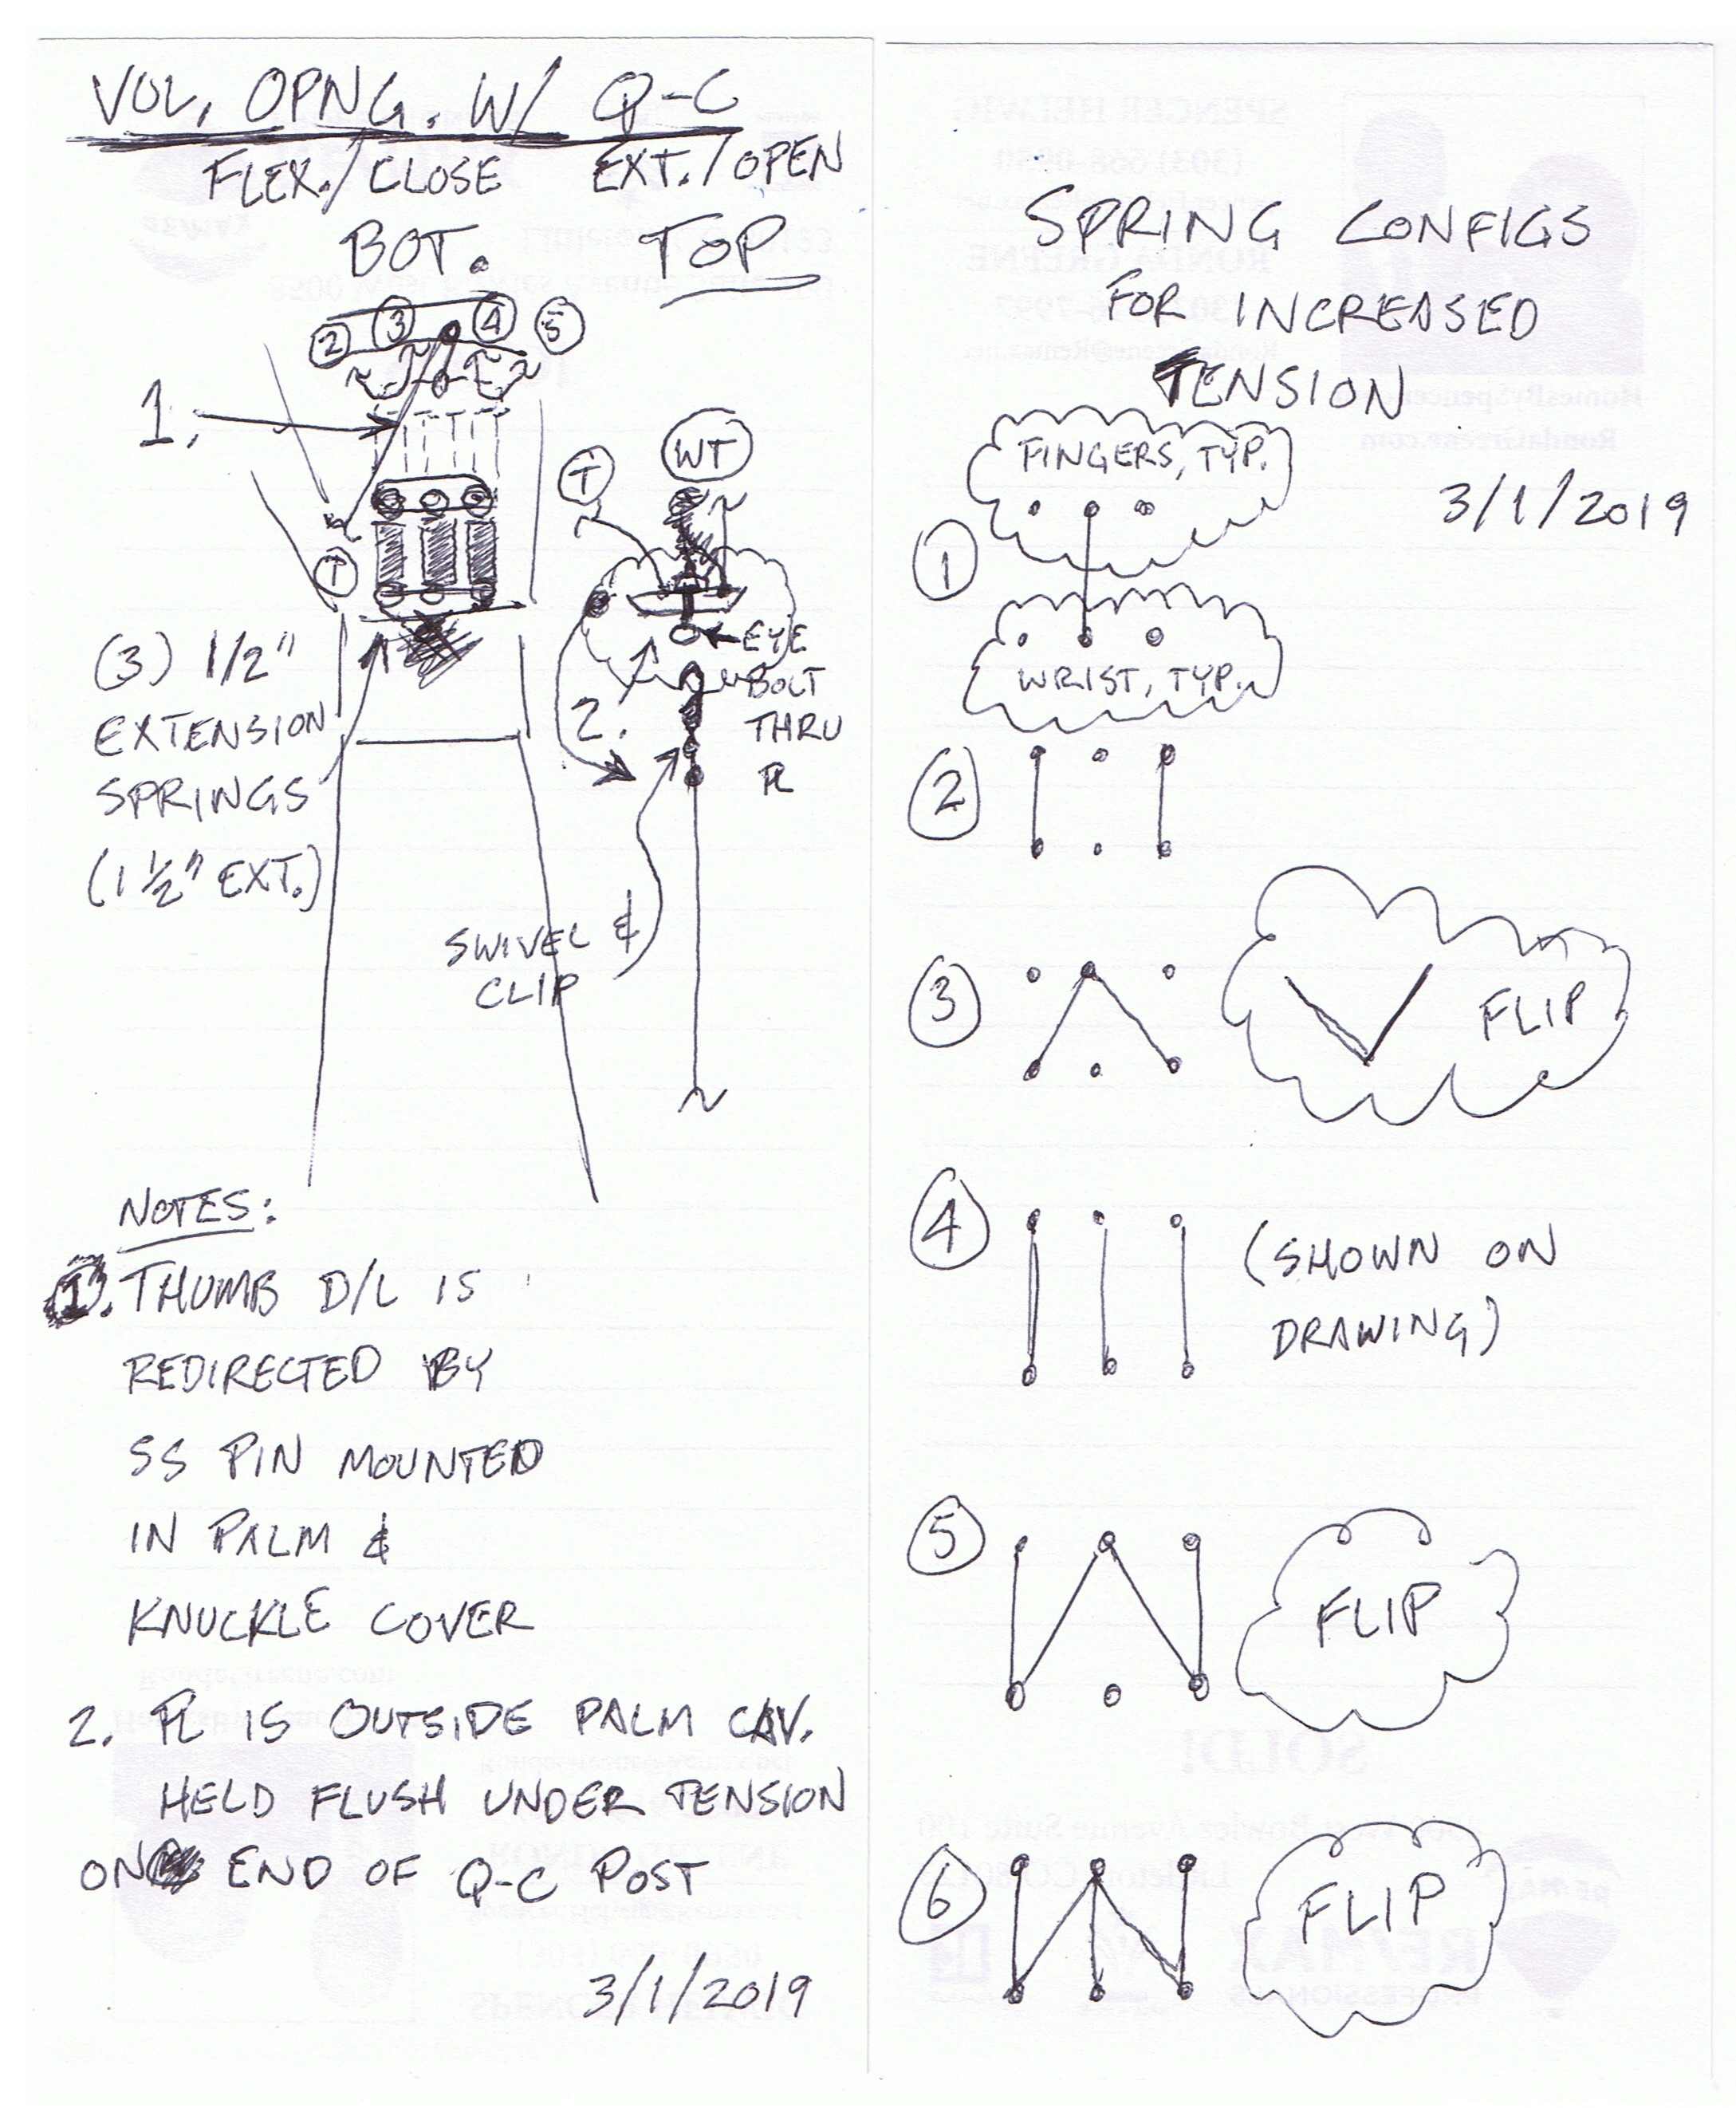 VOL. OPNG. W/ Q-C
FLEX./CLOSE EXT./OPEN
BOT. TOP
2 3 4 5
1.
T
WT
T
(3) 1/2"
EXTENSION
SPRINGS
(1 1/2" EXT.)
EYE
BOLT
THRU
PL
2.
SWIVEL &
CLIP
NOTES:
1. THUMB D/L IS
REDIRECTED BY
SS PIN MOUNTED
IN PALM &
KNUCKLE COVER
2. PL IS OUTSIDE PALM CAV.
HELD FLUSH UNDER TENSION
ON END OF Q-C POST
3/1/2019
SPRING CONFIGS
FOR INCREASED
TENSION
3/1/2019
FINGERS, TYP.
1
WRIST, TYP.
2
3 FLIP
4 (SHOWN ON
DRAWING)
5 FLIP
6 FLIP
SPENCER HELWIG
RONDA GREENE
RondaGreene.com
SOLD!
RE/MAX